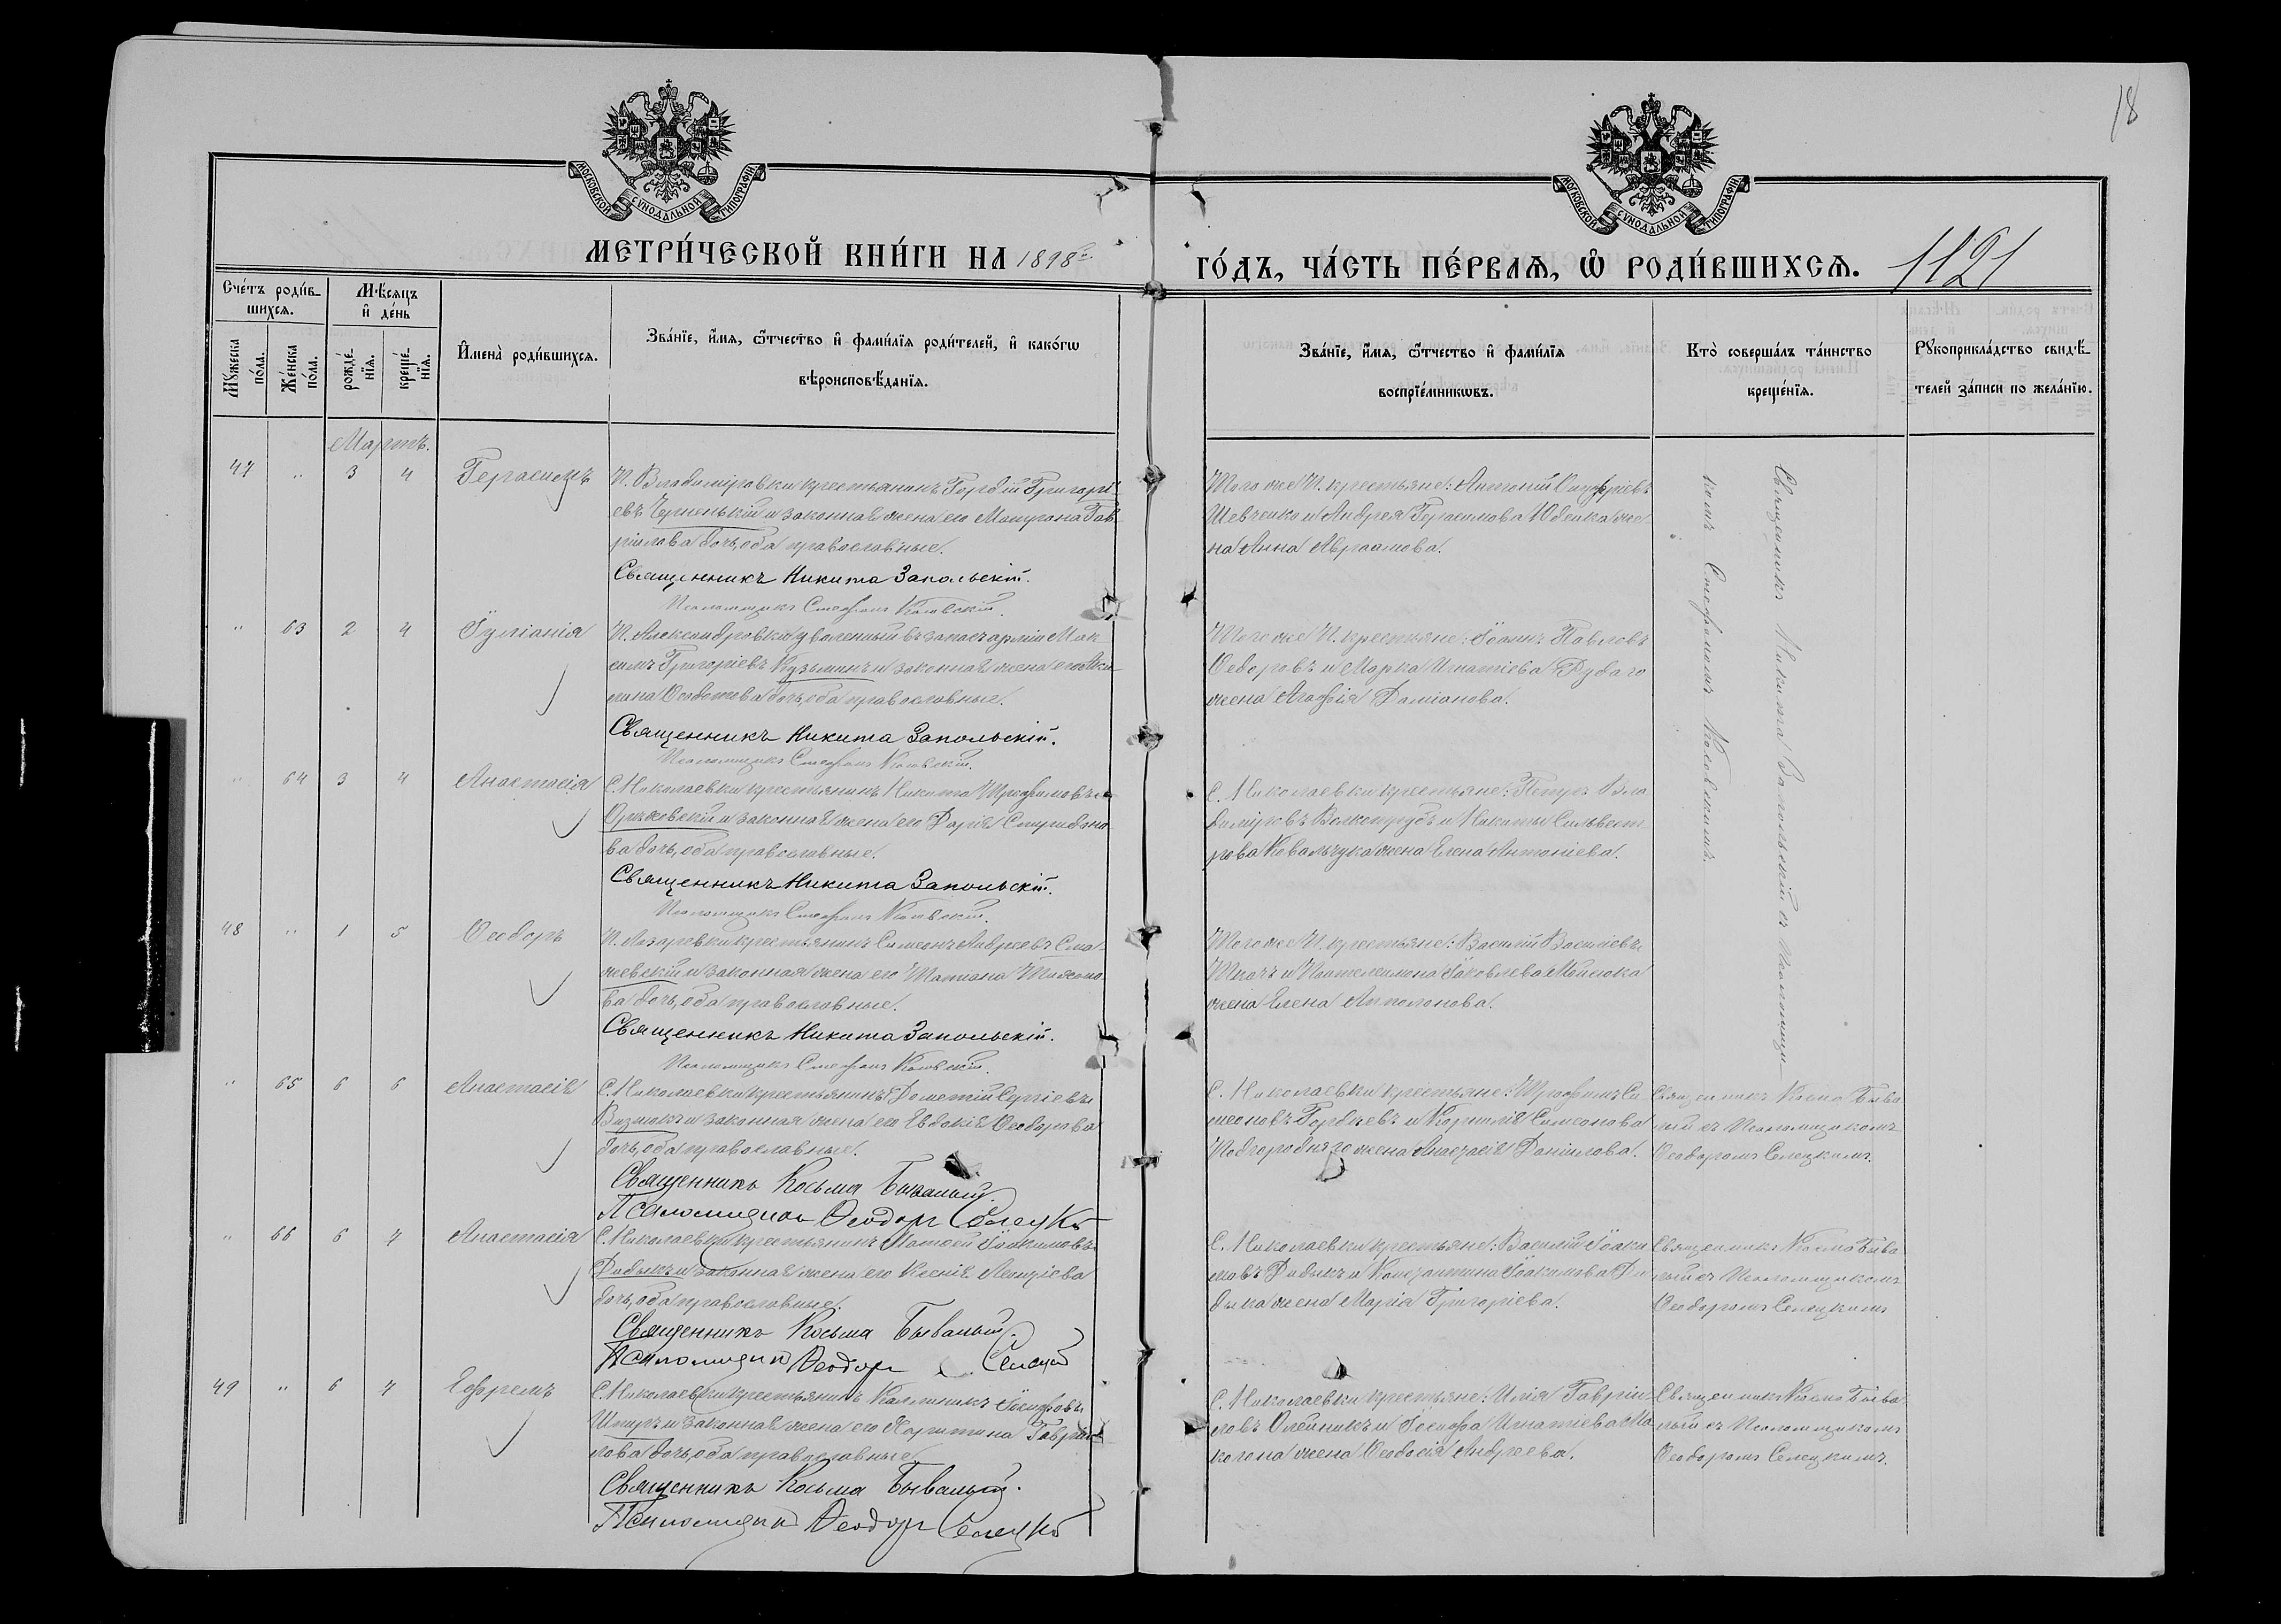 18
МОСКОВСКОЙ СѴНОДАЛЬНОЙ ТИПОГРАФІИ
МОСКОВСКОЙ СѴНОДАЛЬНОЙ ТИПОГРАФІИ
МЕТРИ́ЧЕСКОЙ КНИ́ГИ НА 1898 ГО́ДЪ, ЧА́СТЬ ПЕ́РВАЯ, Ѡ҆ РОДИ́ВШИХСЯ. 1121
Сче́тъ роди́вшихся.
Мѣ́сяцъ и҆ де́нь
Му́жеска по́ла.
Же́нска по́ла.
рожде́нїя.
креще́нїя.
И҆мена̀ роди́вшихся.
Зва́нїе, и҆́мя, ѻ҆́тчество и҆ фами́лїя роди́телей, и҆ како́гѡ
вѣроисповѣ́данїя.
Зва́нїе, и҆́мя, ѻ҆́тчество и҆ фами́лїя
воспрїе́мникѡвъ.
Кто̀ соверша́лъ та́инство
креще́нїя.
Рукоприкла́дство свидѣ́-
телей за́писи по жела́нїю.
Мартъ.
47 " 3 4 Герасимъ
П. Владиміровки крестьянинъ Гордій Григорі-
евъ Черненькій и законная жена его Матрона Гав-
ріилова дочь, оба православные.
Священникъ Никита Запольскій.
Псаломщикъ Стефанъ
Того же П. крестьяне: Антоній Онуфріевъ
Шевченко и Андрея Герасимова Юденка же-
на Анна Авраамова.
Священникъ Никита Запольскій съ Псаломщи-
комъ Стефаномъ
" 63 2 4 Іуліанія
П. Александровки уволенный въ запасъ арміи Мак-
симъ Григоріевъ Кузьминъ и законная жена его Аки-
лина дочь, оба православные.
Священникъ Никита Запольскій.
Псаломщикъ Стефанъ
Того же П. крестьяне: Іоаннъ Павловъ
Ѳедоровъ и Марка Игнатіева Рудаго
жена Агафія Даміанова.
" 64 3 4 Анастасія
С. Николаевки крестьянинъ Никита Трофимовъ
и законная жена его Дарія Спиридоно-
ва дочь, оба православные.
Священникъ Никита Запольскій.
Псаломщикъ Стефанъ
С. Николаевки крестьяне: Петръ Вла-
диміровъ и Никиты Сильвест-
рова Ковальчука жена Елена Антоніева.
48 " 1 5 Ѳеодоръ
П. Лазаревки крестьянинъ Симеонъ Андреевъ Сма-
жевскій и законная жена его Татіана
ва дочь, оба православные.
Священникъ Никита Запольскій.
Псаломщикъ Стефанъ
Того же П. крестьяне: Василій Васильевъ
Ткачъ и Пантелеимона Іаковлева
жена Елена Аполонова.
" 65 6 6 Анастасія
С. Николаевки крестьянинъ Дометій Сергіевъ
и законная жена его Евдокія Ѳеодорова
дочь, оба православные.
Священникъ Косьма Бывалый.
Псаломщикъ Ѳеодоръ Селецкій
С. Николаевки крестьяне: Трофимъ Си-
меоновъ Гордѣевъ и Корнилія Симеонова
Подгородняго жена Анастасія Даніилова.
Священникъ Косма Быва-
лый съ Псаломщикомъ
Ѳеодоромъ Селецкимъ.
" 66 6 7 Анастасія
С. Николаевки крестьянинъ Матѳей Іоакимовъ
Дидыкъ и законная жена его Ксенія Леонтіева
дочь, оба православные.
Священникъ Косьма Бывалый.
Псаломщикъ Ѳеодоръ Селецкій
С. Николаевки крестьяне: Василій Іоаки-
мовъ Дидыкъ и Константина Іоакимова Ди-
дыка жена Марія Григоріева.
Священникъ Косма Быва-
лый съ Псаломщикомъ
Ѳеодоромъ Селецкимъ
49 " 6 7 Ефремъ
С. Николаевки крестьянинъ Каллиникъ Іосифовъ
и законная жена его Харитина Гаврі-
лова дочь, оба православные.
Священникъ Косьма Бывалый.
Псаломщикъ Ѳеодоръ Селецкій
С. Николаевки крестьяне: Илія Гавріи-
ловъ Олейникъ и Іосифа Игнатіева Ма-
жена Ѳеодосія Андреева.
Священникъ Косма Быва-
лый съ Псаломщикомъ
Ѳеодоромъ Селецкимъ.